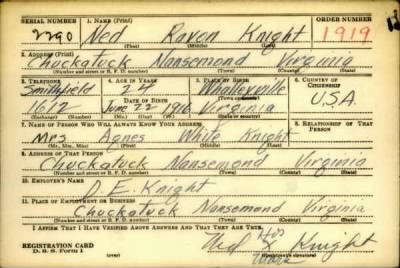 SERIAL NUMBER 1. NAME (Print) ORDER NUMBER
2290 Ned Raven Knight 1919
(First) (Middle) (Last)
2. ADDRESS (Print)
Chuckatuck Nansemond Virginia
(Number and street or R. F. D. number) (Town) (County) (State)
3. TELEPHONE 4. AGE IN YEARS 5. PLACE OF BIRTH 6. COUNTRY OF CITIZENSHIP
Smithfield 24 Whaleyville
DATE OF BIRTH (Town or county)
1612 June 22 1916 Virginia U.S.A.
(Exchange) (Number) (Mo.) (Day) (Yr.) (State or country)
7. NAME OF PERSON WHO WILL ALWAYS KNOW YOUR ADDRESS 8. RELATIONSHIP OF THAT PERSON
Mrs Agnes White Knight
(Mr., Mrs., Miss) (First) (Middle) (Last)
9. ADDRESS OF THAT PERSON
Chuckatuck Nansemond Virginia
(Number and street or R. F. D. number) (Town) (County) (State)
10. EMPLOYER'S NAME
D. E. Knight
11. PLACE OF EMPLOYMENT OR BUSINESS
Chuckatuck Nansemond Virginia
(Number and street or R. F. D. number) (Town) (County) (State)
I AFFIRM THAT I HAVE VERIFIED ABOVE ANSWERS AND THAT THEY ARE TRUE.
REGISTRATION CARD Ned X Knight
his
mark
D. S. S. Form 1 (Registrant's signature)